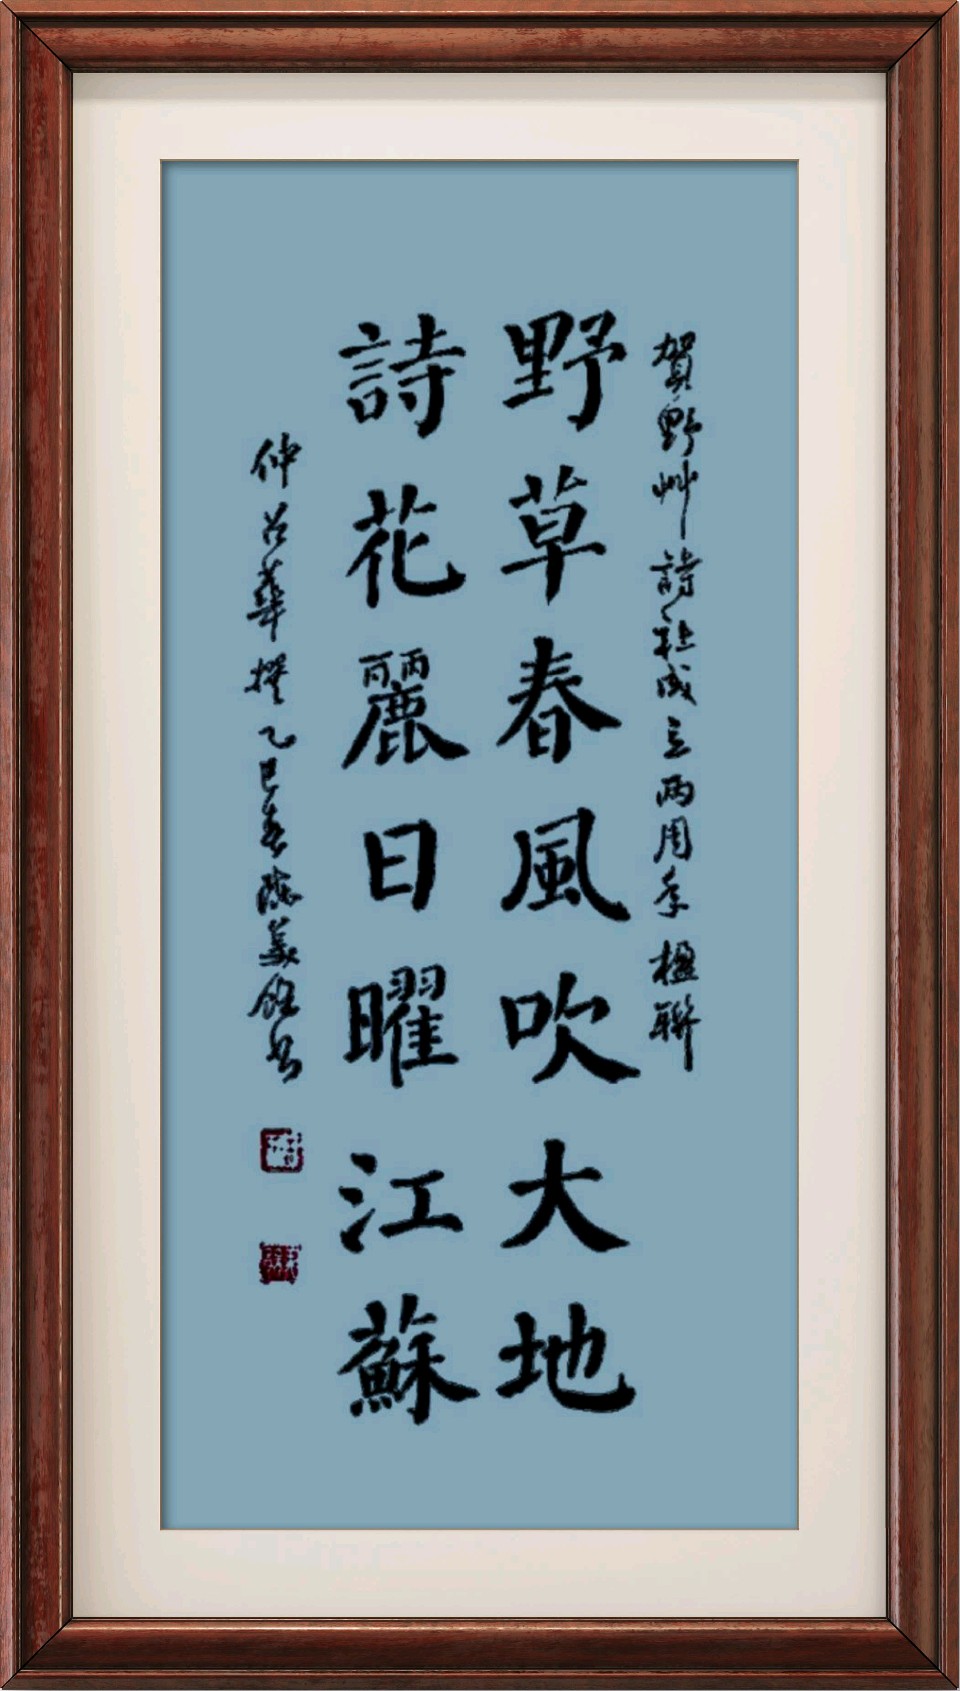 賀野艸詩社成立兩周年楹聯
野草春風吹大地
詩花麗日曜江蘇
仲召華撰乙巳春陈美銓书